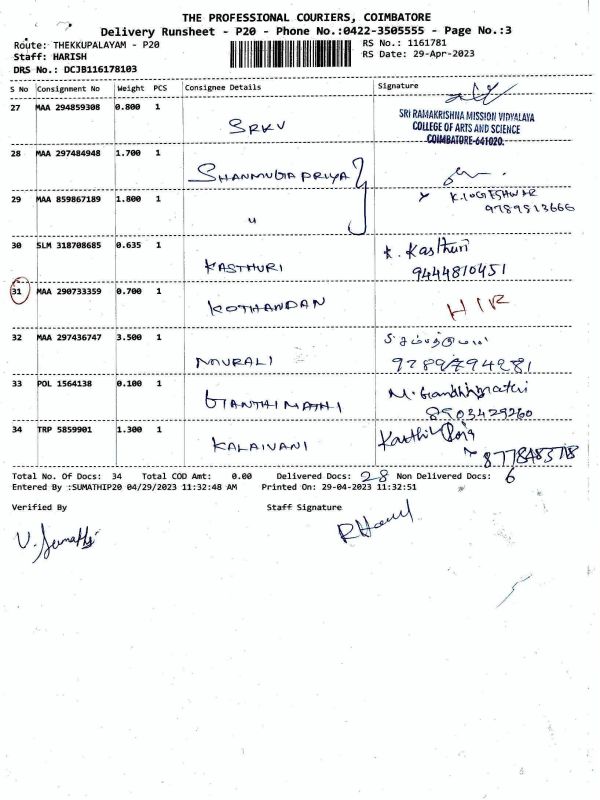 THE PROFESSIONAL COURIERS, COIMBATORE
Delivery Runsheet - P20 - Phone No.:0422-3505555 - Page No.:3
Route: THEKKUPALAYAM - P20
RS No.: 1161781
Staff: HARISH
RS Date: 29-Apr-2023
DRS No.: DCJB116178103
S No Consignment No Weight PCS Consignee Details Signature
27 MAA 294859308 0.800 1 SRKV
SRI RAMAKRISHNA MISSION VIDYALAYA
COLLEGE OF ARTS AND SCIENCE
COIMBATORE-641020.
28 MAA 297484948 1.700 1 SHANMUGAPRIYA
29 MAA 859867189 1.800 1 " K. LOGESHWAR
9789513666
30 SLM 318708685 0.635 1 KASTHURI K. Kasthuri
9444810451
31 MAA 290733359 0.700 1 KOTHANDAN
32 MAA 297436747 3.500 1 MURALI
33 POL 1564138 0.100 1 GANTHIMATHI
8903429260
34 TRP 5859901 1.300 1 KALAIVANI
Total No. Of Docs: 34 Total COD Amt: 0.00 Delivered Docs: 28 Non Delivered Docs: 6
Entered By :SUMATHIP20 04/29/2023 11:32:48 AM Printed On: 29-04-2023 11:32:51
Verified By Staff Signature